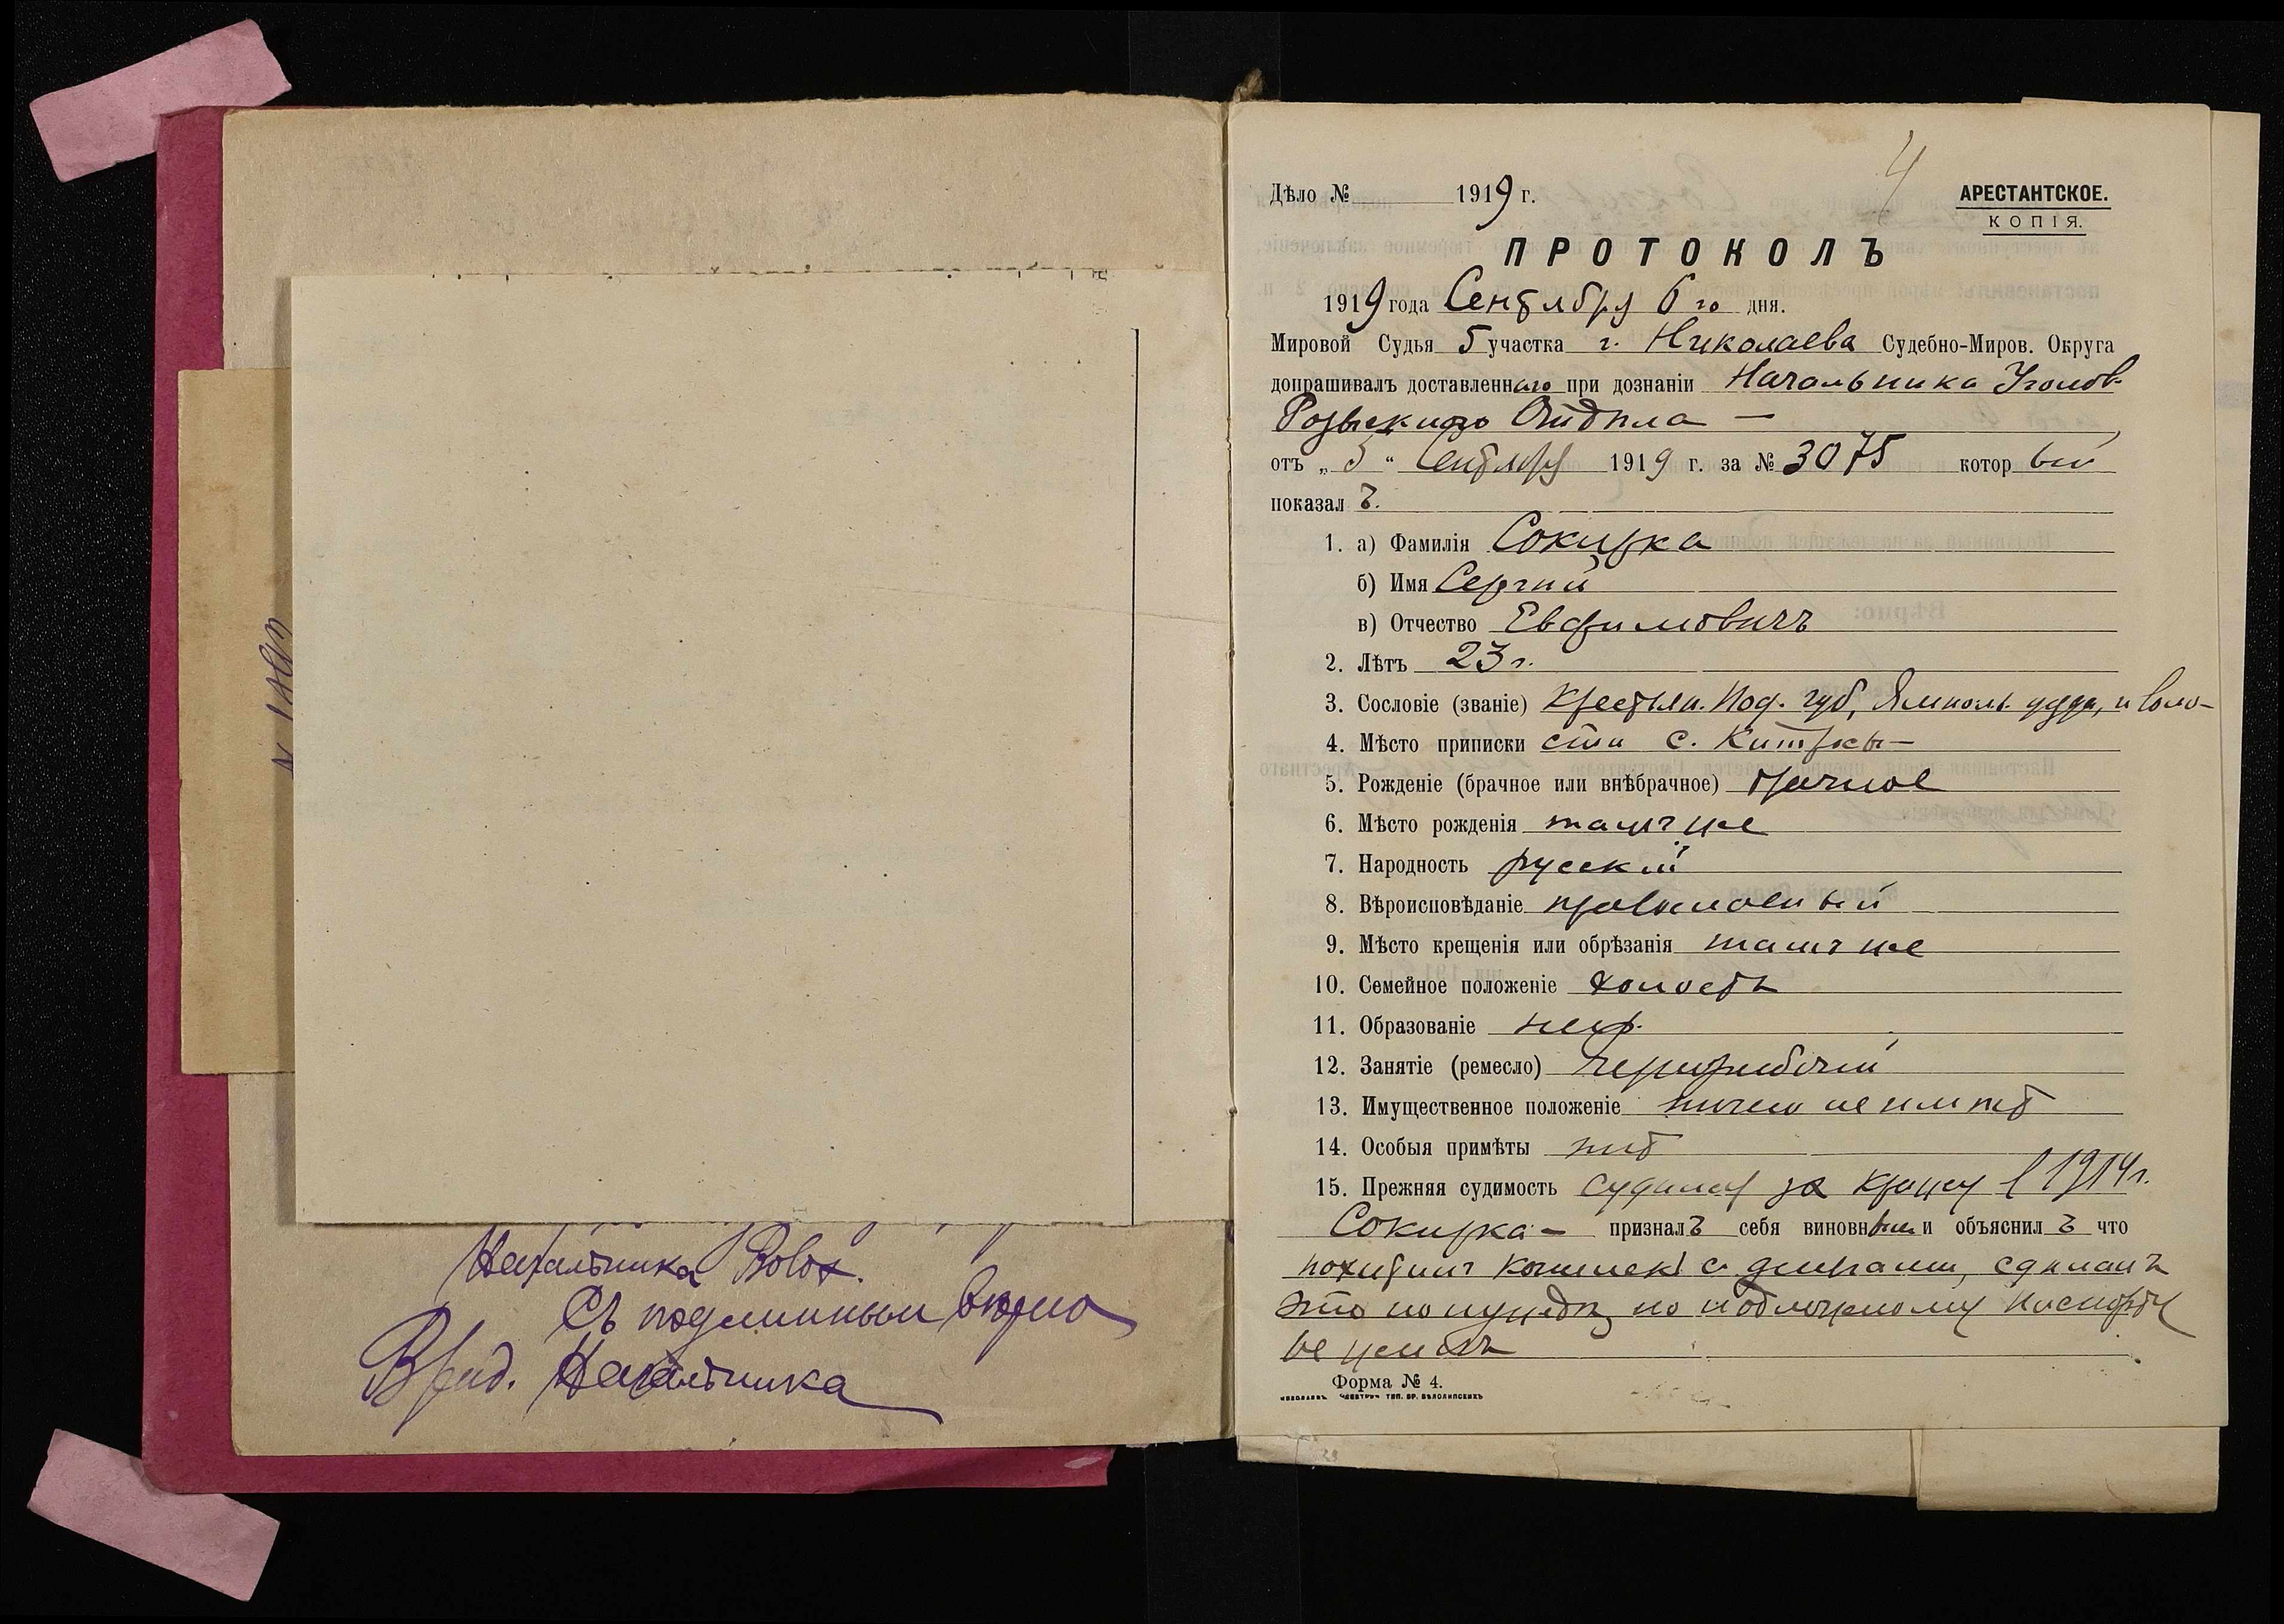 Начальника
Съ подлиннымъ вѣрно
Врид. Начальника
4
Дѣло № 1919 г.
АРЕСТАНТСКОЕ.
КОПІЯ.
ПРОТОКОЛЪ
1919 года Сентября 6 го дня.
Мировой Судья 5 участка г. Николаева Судебно-Миров. Округа
допрашивалъ доставленнаго при дознаніи Начальника Уголов.
Розыскного Отдѣла —
отъ „5“ Сентября 1919 г. за № 3075 который
показалъ.
1. а) Фамилія Сокирка
б) Имя Сергѣй
в) Отчество Евфимовичъ
2. Лѣтъ 23 г.
3. Сословіе (званіе) Крестьян. Под. губ, Ямполь. уѣзда, и воло-
4. Мѣсто приписки сти с.
5. Рожденіе (брачное или внѣбрачное) брачное
6. Мѣсто рожденія тамъ же
7. Народность русскій
8. Вѣроисповѣданіе православный
9. Мѣсто крещенія или обрѣзанія тамъ же
10. Семейное положеніе холостъ
11. Образованіе негр.
12. Занятіе (ремесло) чернорабочій
13. Имущественное положеніе ничего не имѣетъ
14. Особыя примѣты нѣтъ
15. Прежняя судимость судился за кражу в 1914 г.
Сокирка — призналъ себя виновнымъ и объяснилъ что
похитилъ кошелек с деньгами, сдѣлалъ
это по нуждѣ, по подложному паспорту
не жилъ
Форма № 4.